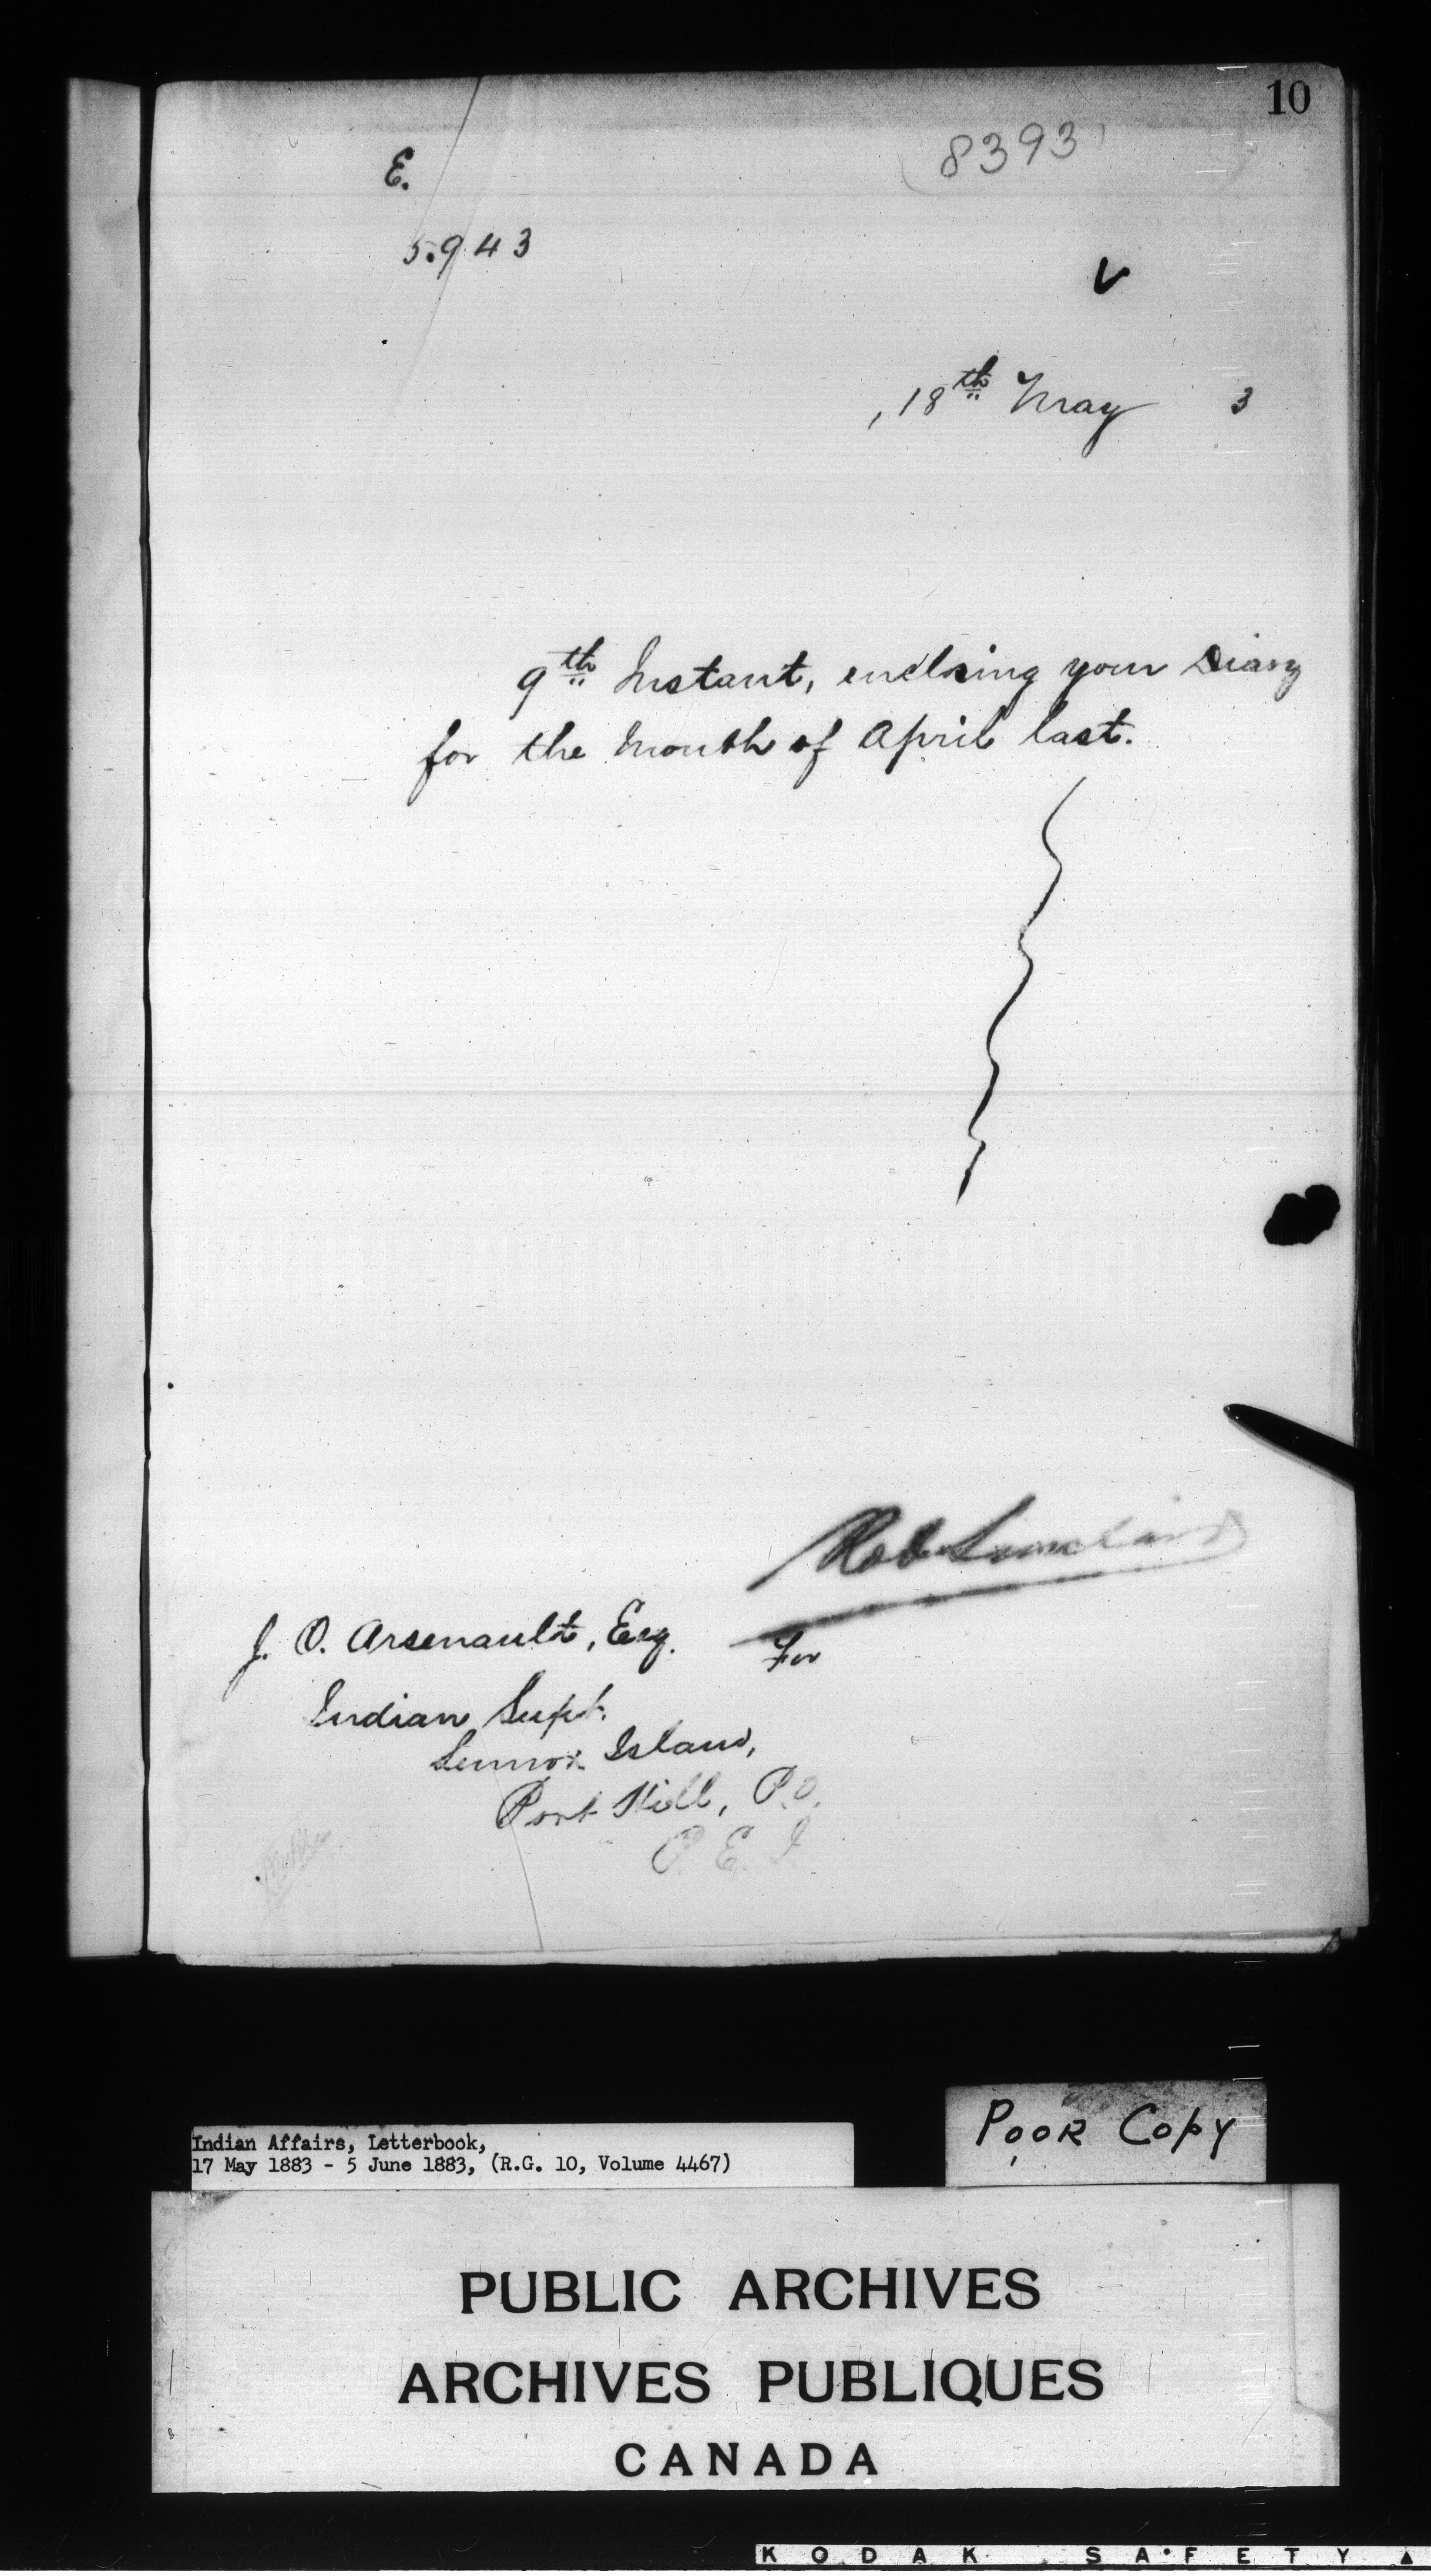 10
8393
E.
5.943
, 18th May 3
9th Instant, enclosing your Diary
for the month of April last.
Rob Sinclair
J. O. Arsenault, Esq.
For
Indian Supt.
Lennox Island,
Port Hill, P.O.
P. E. I.
Indian Affairs, Letterbook,
17 May 1883 - 5 June 1883, (R.G. 10, Volume 4467)
POOR COPY
PUBLIC ARCHIVES
ARCHIVES PUBLIQUES
CANADA
KODAK SAFETY